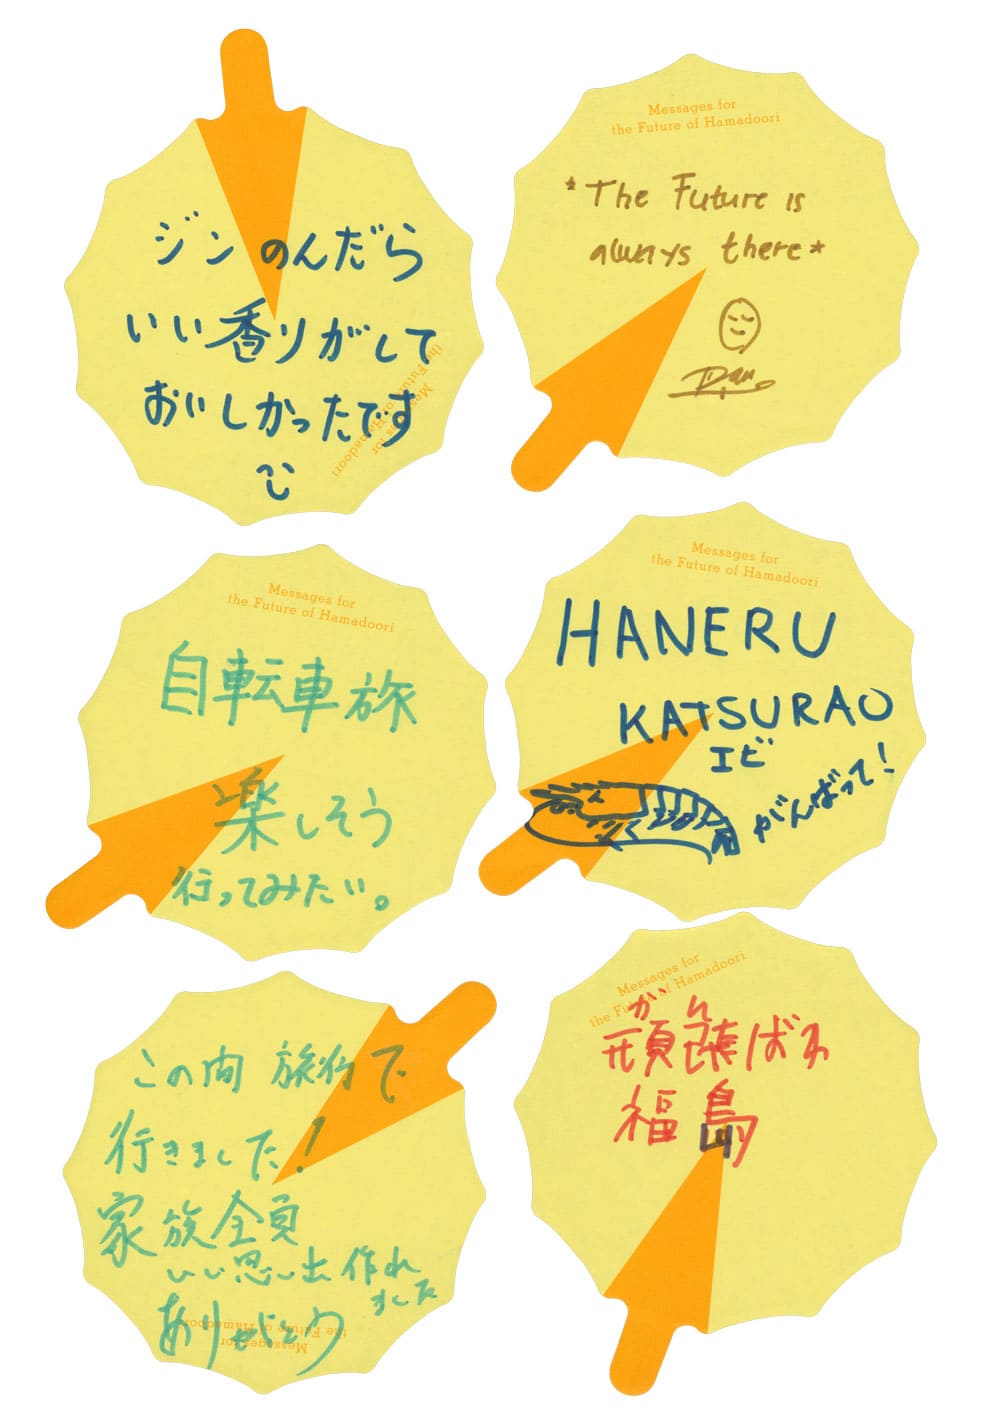 ジンのんだら
いい香りがして
おいしかったです
Messages for
the Future of Hamadoori
Messages for
the Future of Hamadoori
*The Future is
always there*
Messages for
the Future of Hamadoori
自転車旅
楽しそう
行ってみたい。
Messages for
the Future of Hamadoori
HANERU
KATSURAO
エビ
がんばって!
この間 旅行で
行きました!
家族全員
いい思い出作れ
ました
ありがとう
Messages for
the Future of Hamadoori
Messages for
the Future of Hamadoori
がん
頑張ばれ
福島